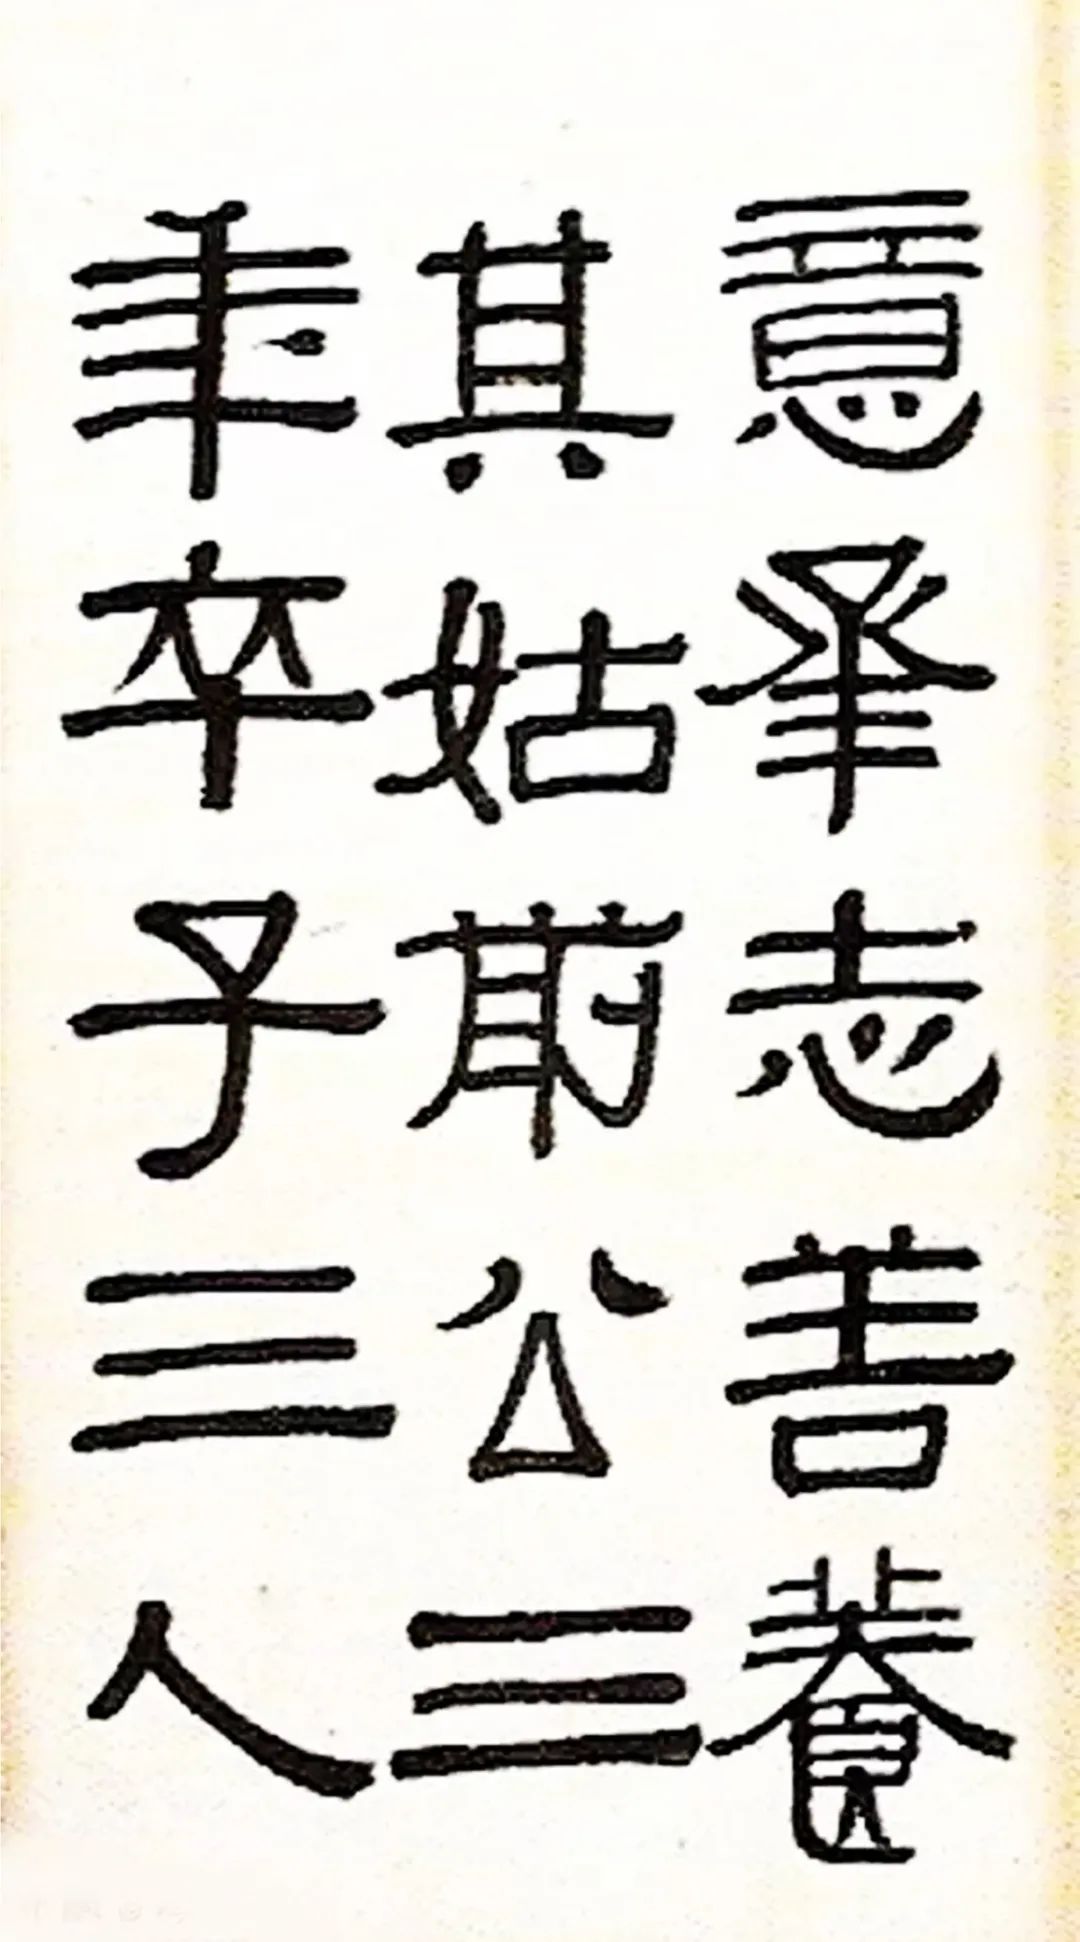 意承志善養
其姑前公三
年卒子三人